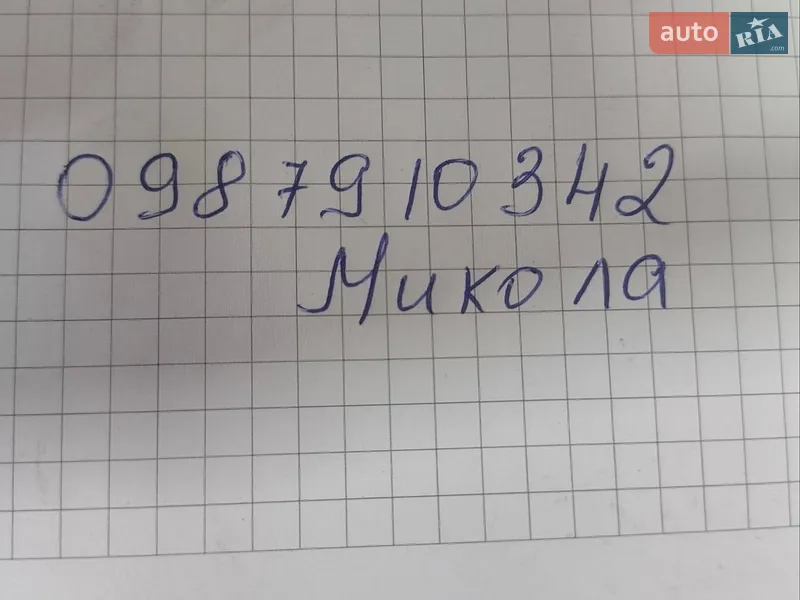 auto RIA.com
0987910342
Микола